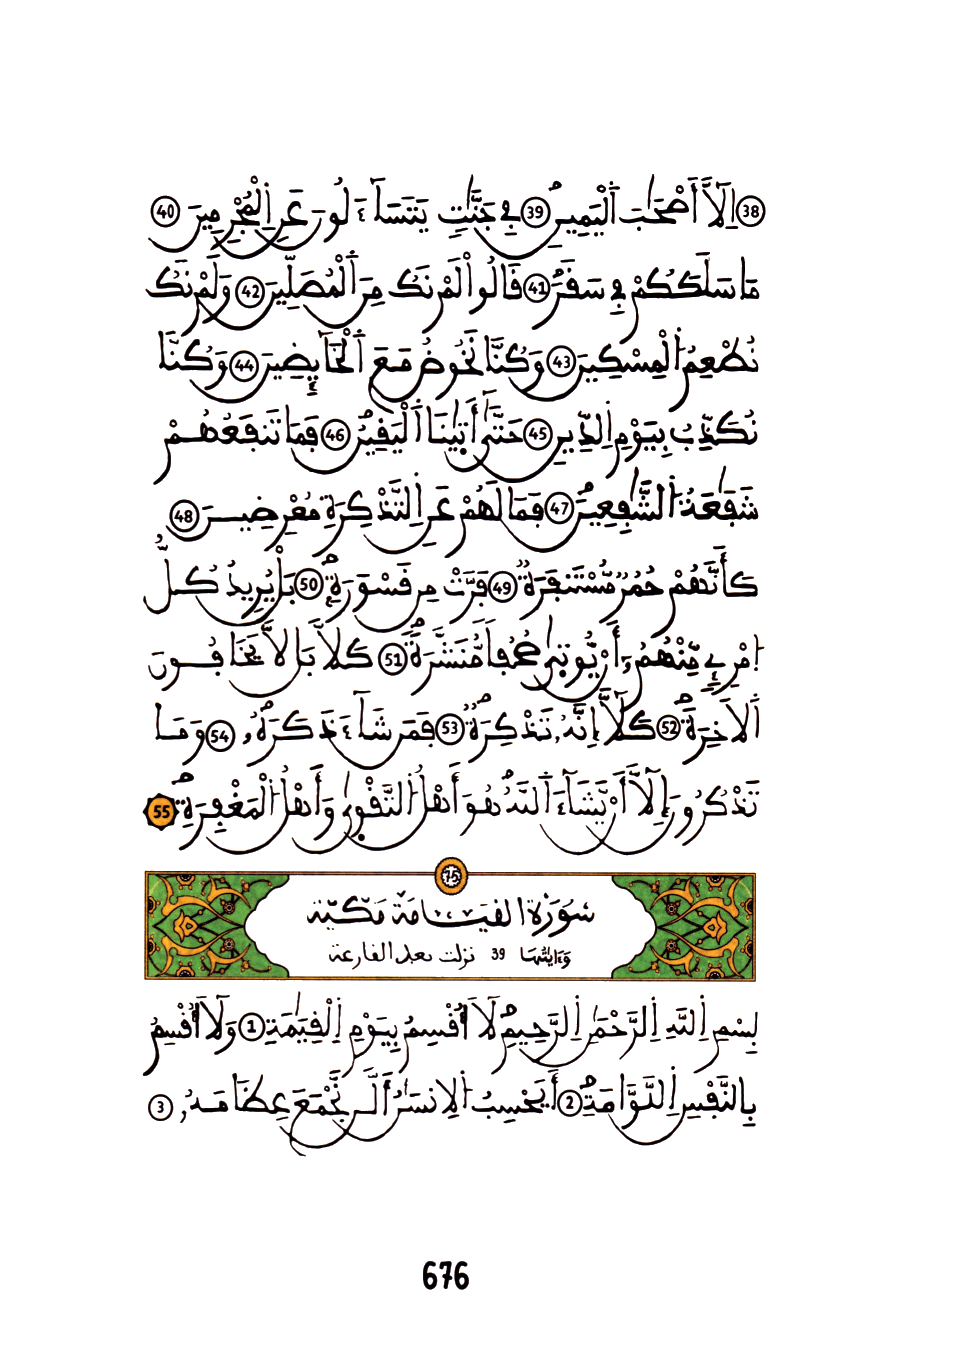 38 إِلَّا أَصْحَٰبَ اَلْيَمِينِ 39 فِے جَنَّٰتٖ يَتَسَآءَلُونَ عَنِ اِلْمُجْرِمِينَ 40
مَا سَلَكَكُمْ فِے سَقَرَۖ 41 قَالُواْ لَمْ نَكُ مِنَ اَلْمُصَلِّينَ 42 وَلَمْ نَكُ
نُطْعِمُ اُلْمِسْكِينَ 43 وَكُنَّا نَخُوضُ مَعَ اَلْخَآئِضِينَ 44 وَكُنَّا
نُكَذِّبُ بِيَوْمِ اِلدِّينِ 45 حَتَّىٰٓ أَتَيٰنَا اَلْيَقِينُۖ 46 فَمَا تَنفَعُهُمْ
شَفَٰعَةُ اُلشَّٰفِعِينَۖ 47 فَمَا لَهُمْ عَنِ اِلتَّذْكِرَةِ مُعْرِضِينَ 48
كَأَنَّهُمْ حُمُرٞ مُّسْتَنفَرَةٞ 49 فَرَّتْ مِن قَسْوَرَةِۢۖ 50 بَلْ يُرِيدُ كُلُّ
اُمْرِےٕٖ مِّنْهُمُۥٓ أَنْ يُّوتَيٰ صُحُفاٗ مُّنَشَّرَةٗۖ 51 كَلَّا بَل لَّا يَخَافُونَ
اَلَاخِرَةَۖ 52 كَلَّآ إِنَّهُۥ تَذْكِرَةٞۖ 53 فَمَن شَآءَ ذَكَرَهُۥۖ 54 وَمَا
تَذْكُرُونَ إِلَّآ أَنْ يَّشَآءَ اَللَّهُۖ هُوَ أَهْلُ اُلتَّقْوۭيٰ وَأَهْلُ اُلْمَغْفِرَةِۖ 55
75
سُورَةُ الْقِيَامَةِ مَكِّيَّة
وَءَايَاتُهَا 39 نزلت بعد القارعة
بِسْمِ اِللَّهِ اِلرَّحْمَٰنِ اِلرَّحِيمِ لَآ أُقْسِمُ بِيَوْمِ اِلْقِيَٰمَةِ 1 وَلَآ أُقْسِمُ
بِالنَّفْسِ اِللَّوَّامَةِۖ 2 أَيَحْسِبُ اُلِانسَٰنُ أَلَّن نَّجْمَعَ عِظَامَهُۥ 3
676